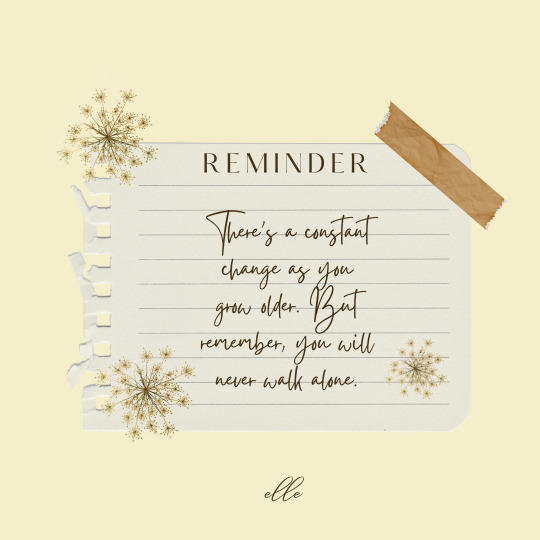 REMINDER
There's a constant
change as you
grow older. But
remember, you will
never walk alone.
elle